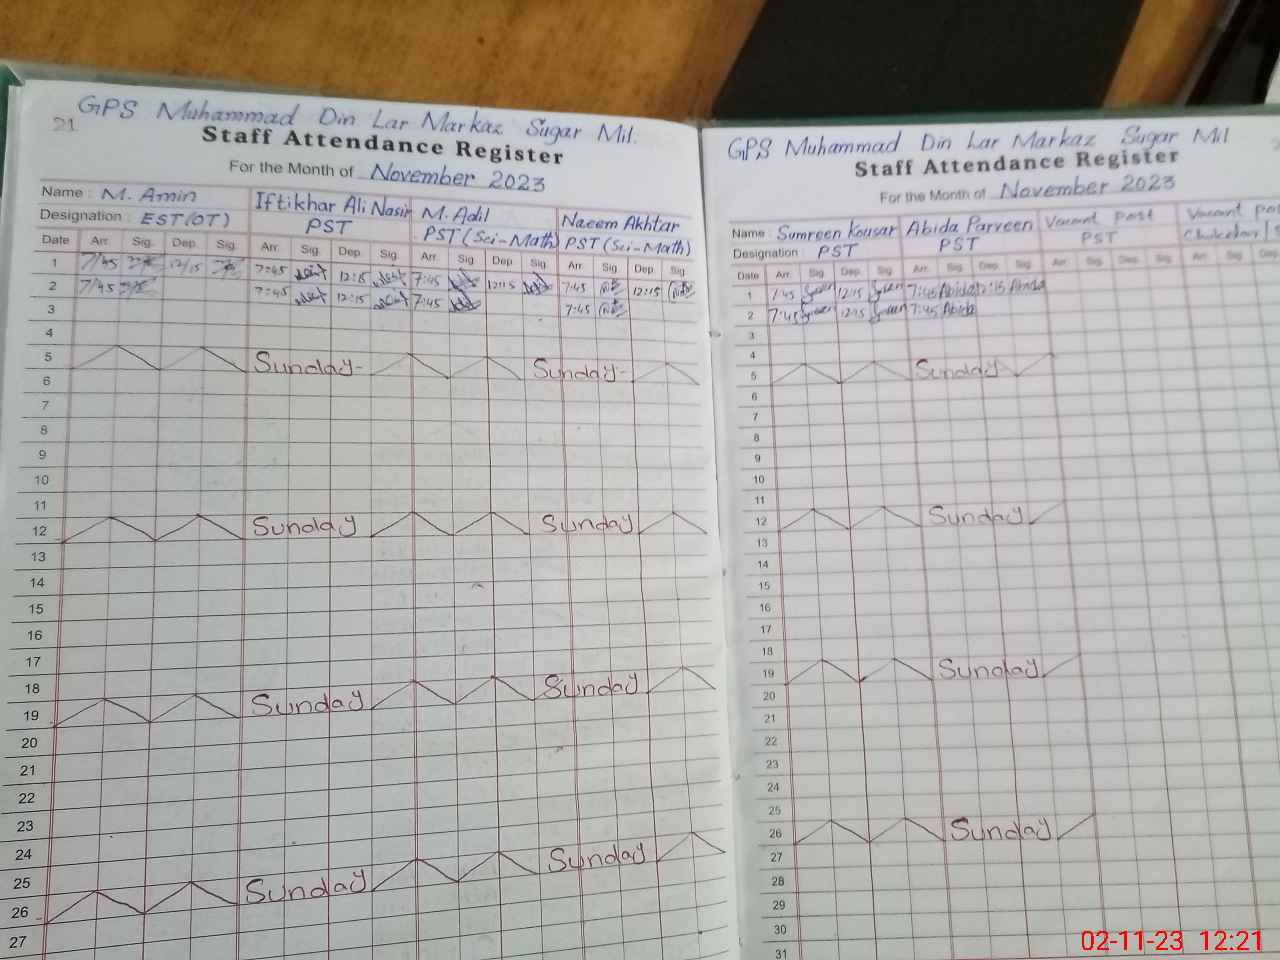 21
GPS Muhammad Din Lar Markaz Sugar Mil.
Staff Attendance Register
For the Month of November 2023
Name : M. Amin Iftikhar Ali Nasir M. Adil Naeem Akhtar
Designation : EST(OT) PST PST (Sci-Math) PST (Sci-Math)
Date Arr. Sig. Dep. Sig. Arr. Sig. Dep. Sig. Arr. Sig. Dep. Sig. Arr. Sig. Dep. Sig.
1 7/45 12/15 7:45 12:15 7:45 12:15 7:45 12:15
2 7/45 7:45 12:15 7:45 7:45
3
4
5 Sunday Sunday
6
7
8
9
10
11
12 Sunday Sunday
13
14
15
16
17
18
19 Sunday Sunday
20
21
22
23
24
25
26 Sunday Sunday
27
GPS Muhammad Din Lar Markaz Sugar Mil
Staff Attendance Register
For the Month of November 2023
Name : Sumreen Kousar Abida Parveen Vacant Post Vacant
Designation : PST PST PST
Date Arr. Sig. Dep. Sig. Arr. Sig. Dep. Sig. Arr. Sig. Dep. Sig. Arr. Sig. Dep.
1 7:45 12:15 7:45 Abida 12:15 Abida
2 7:45 12:15 7:45 Abida
3
4
5 Sunday
6
7
8
9
10
11
12 Sunday
13
14
15
16
17
18
19 Sunday
20
21
22
23
24
25
26 Sunday
27
28
29
30
31
02-11-23 12:21